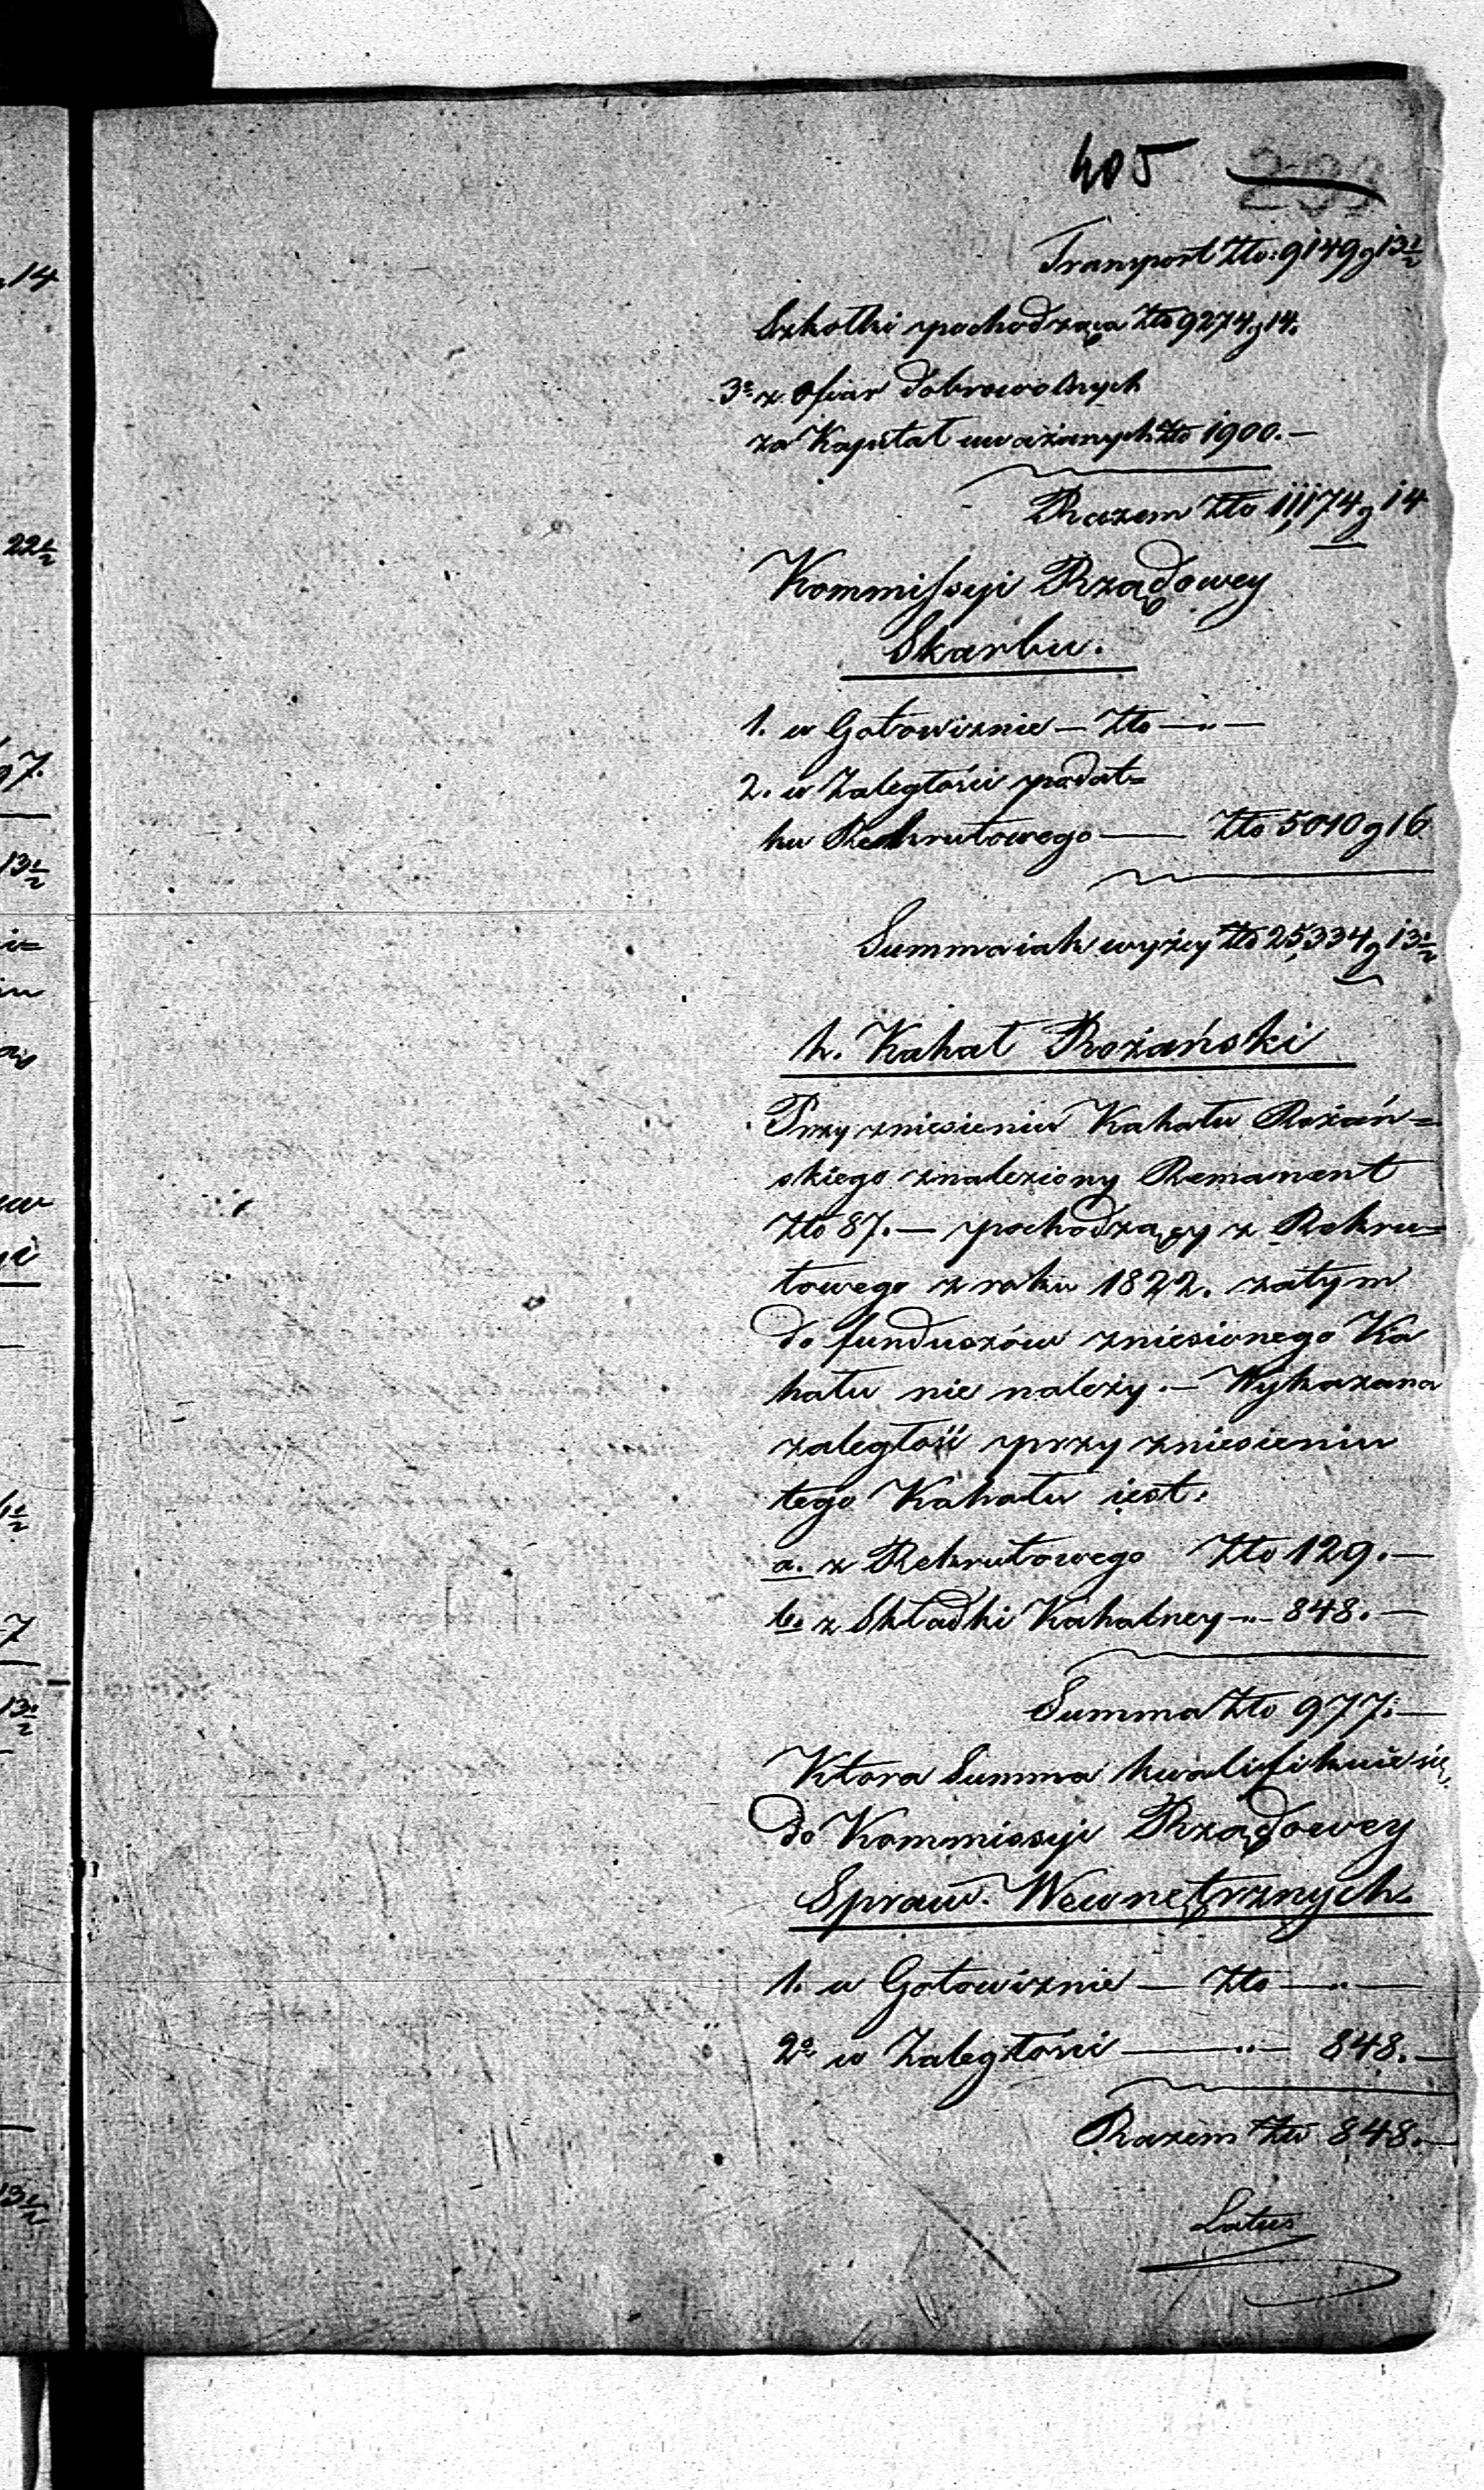 405 233
Transport Złto: 9149 g 13 1/2
Szkołki pochodząca Złto 9274 g 14.
3o z Ofiar dobrowolnych
za Kapitał uważanych Złto 1900.—
Razem Złto 11,174 g 14
Kommissyi Rządowey
Skarbu.
1. w Gotowiznie — Złto — „ —
2. w Zaległości podat=
ku Rekrutowego — Złto 5010 g 16
Summa iak wyżey Złto 25,334 g 13 1/2
h. Kahał Rożański
Przy zniesieniu Kahału Rożań=
skiego znaleziony Remanent
Złto 87.— pochodzący z Rekru=
towego z roku 1822. zatym
do funduszów zniesionego Ka
hału nie należy.— Wykazana
zaległość przy zniesieniu
tego Kahału iest:
a. z Rekrutowego Złto 129.—
b. z Składki Kahalney — „ — 848.—
Summa Złto 977.—
Ktora Summa kwalifikuie się
do Kommissyi Rządowey
Spraw Wewnętrznych.
1. w Gotowiznie — Złto — „ —
2o w Zaległości — „ — 848.—
Razem Złto 848.—
Latus
14
22 1/2
97.
13 1/2
7
13 1/2
13 1/2